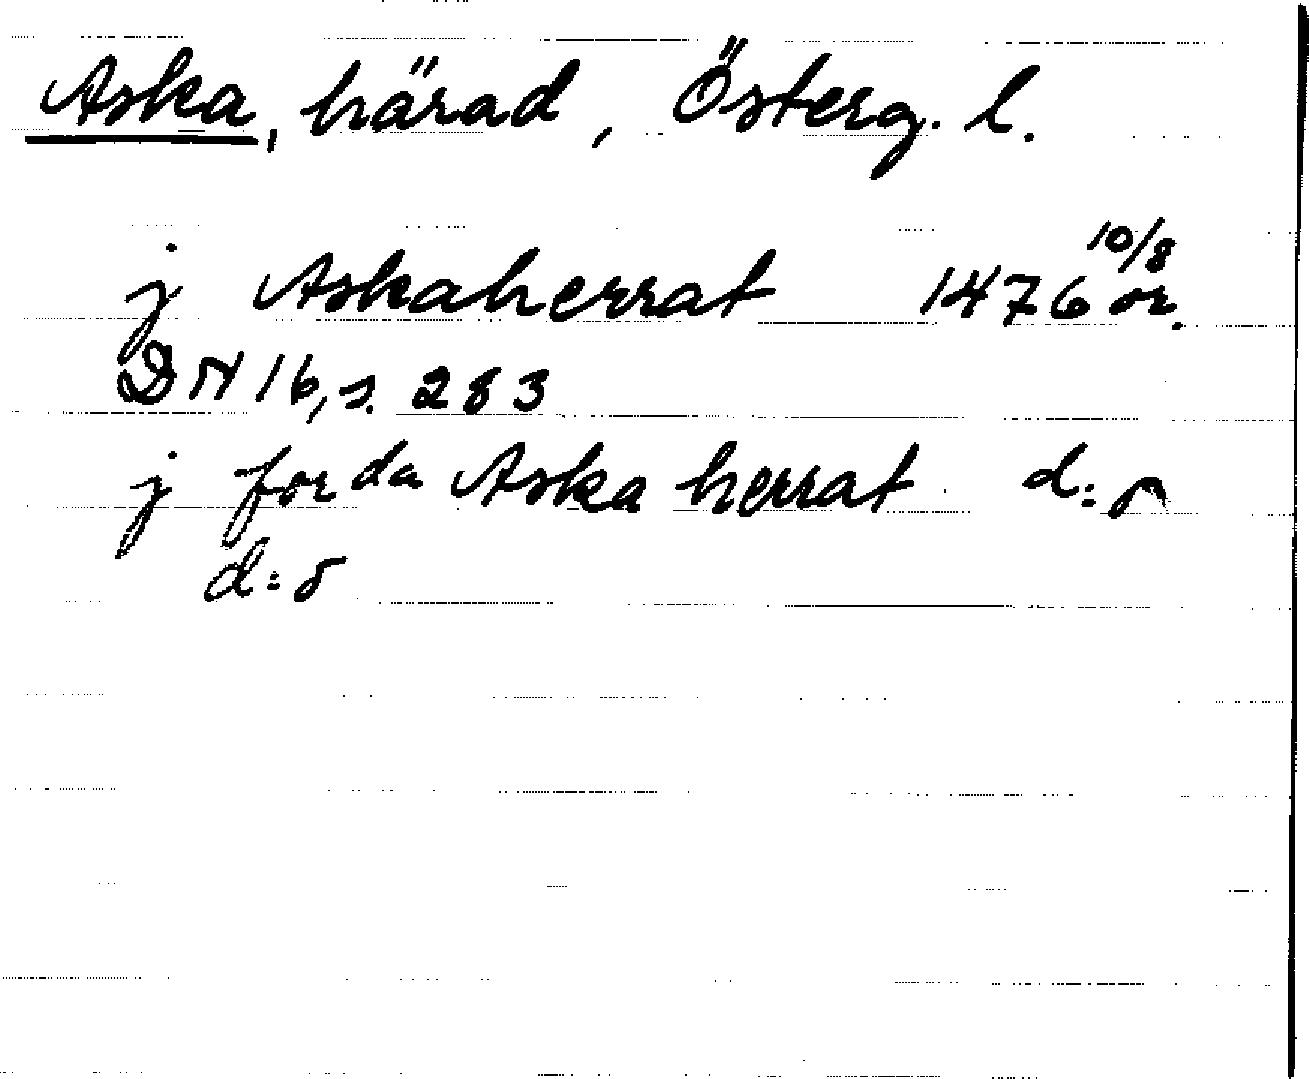 Aska, härad, Österg. l.
j Askaherrat 1476 10/8 or.
DN 16, s. 283
j forda Aska herrat d:o
d:o